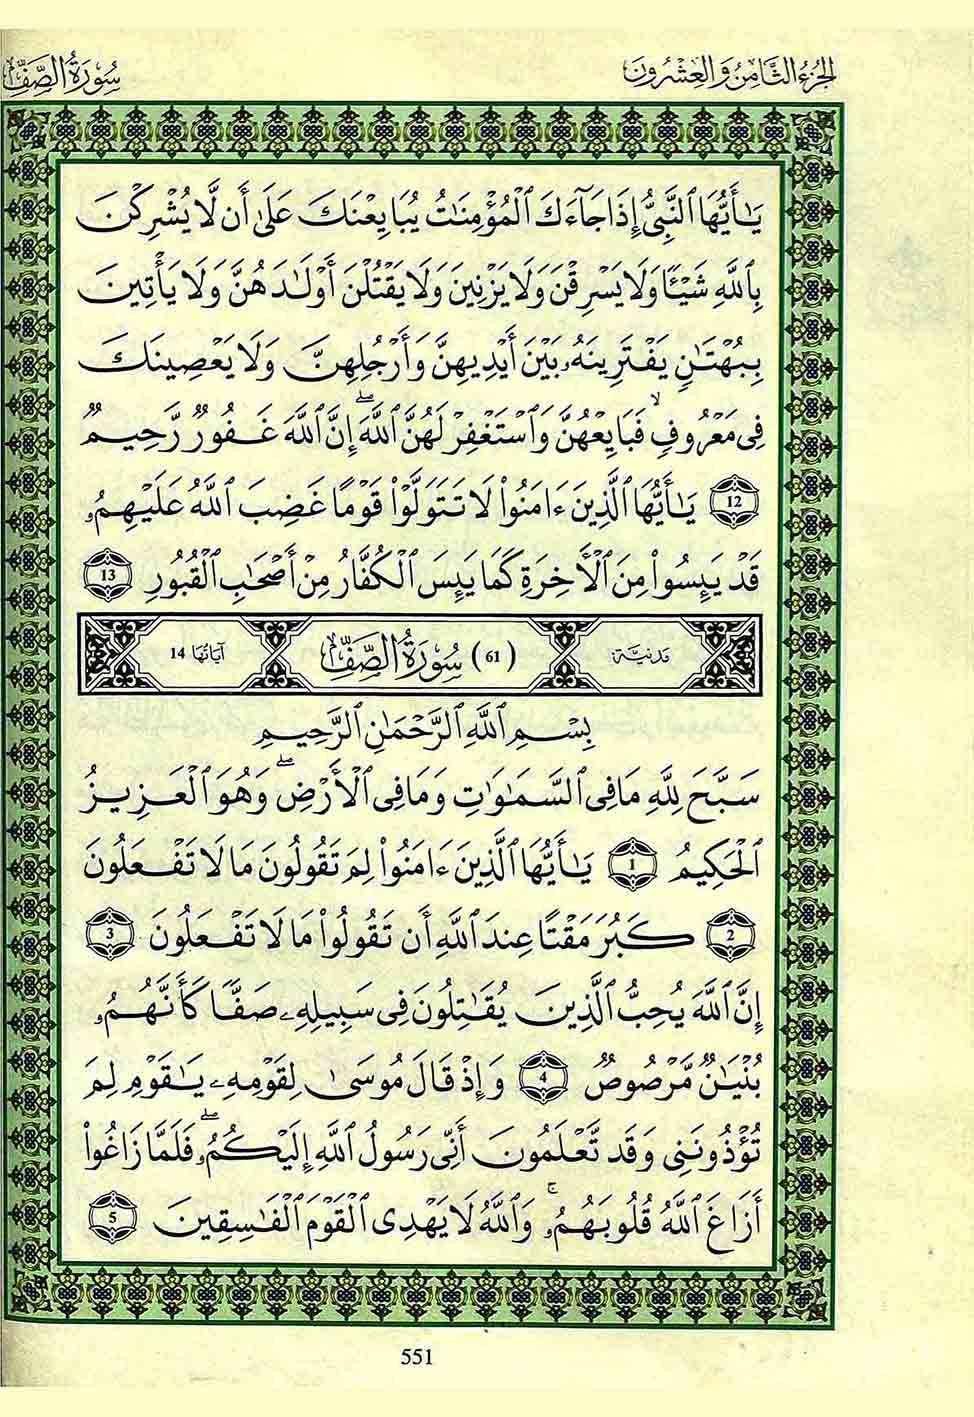 الجزء الثامن والعشرون
سورة الصف
يَـٰٓأَيُّهَا ٱلنَّبِىُّ إِذَا جَآءَكَ ٱلْمُؤْمِنَـٰتُ يُبَايِعْنَكَ عَلَىٰٓ أَن لَّا يُشْرِكْنَ
بِٱللَّهِ شَيْـًٔا وَلَا يَسْرِقْنَ وَلَا يَزْنِينَ وَلَا يَقْتُلْنَ أَوْلَـٰدَهُنَّ وَلَا يَأْتِينَ
بِبُهْتَـٰنٍ يَفْتَرِينَهُۥ بَيْنَ أَيْدِيهِنَّ وَأَرْجُلِهِنَّ وَلَا يَعْصِينَكَ
فِى مَعْرُوفٍ ۙ فَبَايِعْهُنَّ وَٱسْتَغْفِرْ لَهُنَّ ٱللَّهَ ۖ إِنَّ ٱللَّهَ غَفُورٌ رَّحِيمٌ
12 يَـٰٓأَيُّهَا ٱلَّذِينَ ءَامَنُوا۟ لَا تَتَوَلَّوْا۟ قَوْمًا غَضِبَ ٱللَّهُ عَلَيْهِمُۥ
قَدْ يَئِسُوا۟ مِنَ ٱلْأَخِرَةِ كَمَا يَئِسَ ٱلْكُفَّارُ مِنْ أَصْحَـٰبِ ٱلْقُبُورِ 13
مدنية (61) سورة الصف آياتها 14
بِسْمِ ٱللَّهِ ٱلرَّحْمَـٰنِ ٱلرَّحِيمِ
سَبَّحَ لِلَّهِ مَا فِى ٱلسَّمَـٰوَٰتِ وَمَا فِى ٱلْأَرْضِ ۖ وَهُوَ ٱلْعَزِيزُ
ٱلْحَكِيمُ 1 يَـٰٓأَيُّهَا ٱلَّذِينَ ءَامَنُوا۟ لِمَ تَقُولُونَ مَا لَا تَفْعَلُونَ
2 كَبُرَ مَقْتًا عِندَ ٱللَّهِ أَن تَقُولُوا۟ مَا لَا تَفْعَلُونَ 3
إِنَّ ٱللَّهَ يُحِبُّ ٱلَّذِينَ يُقَـٰتِلُونَ فِى سَبِيلِهِۦ صَفًّا كَأَنَّهُمُۥ
بُنْيَـٰنٌ مَّرْصُوصٌ 4 وَإِذْ قَالَ مُوسَىٰ لِقَوْمِهِۦ يَـٰقَوْمِ لِمَ
تُؤْذُونَنِى وَقَد تَّعْلَمُونَ أَنِّى رَسُولُ ٱللَّهِ إِلَيْكُمُۥ ۖ فَلَمَّا زَاغُوٓا۟
أَزَاغَ ٱللَّهُ قُلُوبَهُمُۥ ۚ وَٱللَّهُ لَا يَهْدِى ٱلْقَوْمَ ٱلْفَـٰسِقِينَ 5
551